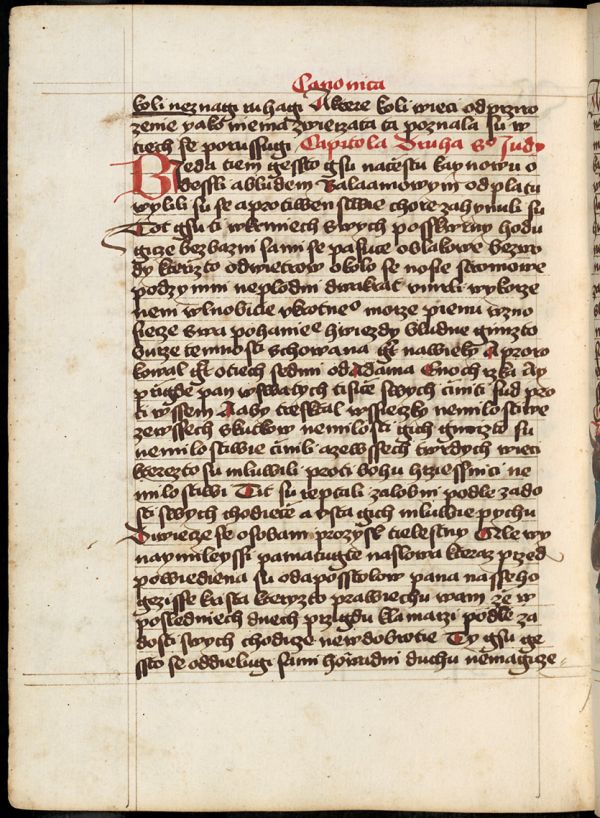 Canonica
koli neznagi ruhagi Aktere koli wieci od przyro
zenie yako niema zwierzata ta poznala su w
tiech se porussugi Capitola Druha S. Judy
Bieda tiem gessto gsu nacestu kaynowu o
dessli abludem Balaamowym odplatu
wylili su se aprotiwen stwie chore zahynuli su
Tot gsu ti wkrmiech swych posskwrny hodu
gicze bezbazni sami se pasuce oblakowe bezwo
dy kterizto odwietrow okolo se nosie stromowe
podzymni neplodni dwakrat umrli wykorze
neni wlnobicie ukrotneo morze pienu wzno
siecze swa pohanieo hwiezdy bludne gimzto
burze temnosti schowana gt nawieky A proro
kowal gt otiech sedmi od Adama Enoch rzka Ay
prigde pan wswatych tisice swych ciniti sud pro
ti wssem Aaby tresktal wssiecky nemilostiwe
zewssech skutkow nemilosti gich gimizto su
nemilostiwie cinili azewssech twrdych wieci
kterezto su mluwili proti bohu hrziessnici ne
milostiwi Tit su reptali zalobni podle zado
sti swych chodiece a usta gich mluwie pychu
Diwiecze se osobam prozysk tielestny Ale wy
naymileyssi pamatugte naslowa kteraz przed
powiediena su odapossstolow pana nasseho
gezisse krista kteryzto prawiechu wam ze w
poslednich dnech przigdu klamarzi podle za
dosti swych chodicze newdobrotie Ty gsu ge
ssto se oddielugi sami howadni duchu nemagicze